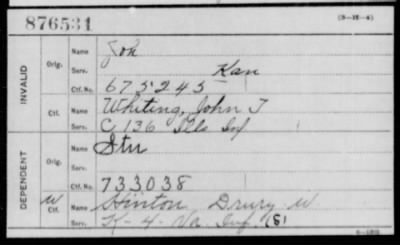 876531 (3—H—4)
Name Joh
INVALID Orig. Serv. Kan
Ctf. No. 675245
Name Whiting, John T
Ctf. Serv. C 136 Ills Inf
Name Stn
DEPENDENT Orig. Serv.
Ctf. No. 733038
W Ctf. Name Hinton Drury W
Serv. K-4-Va. Inf. (S)